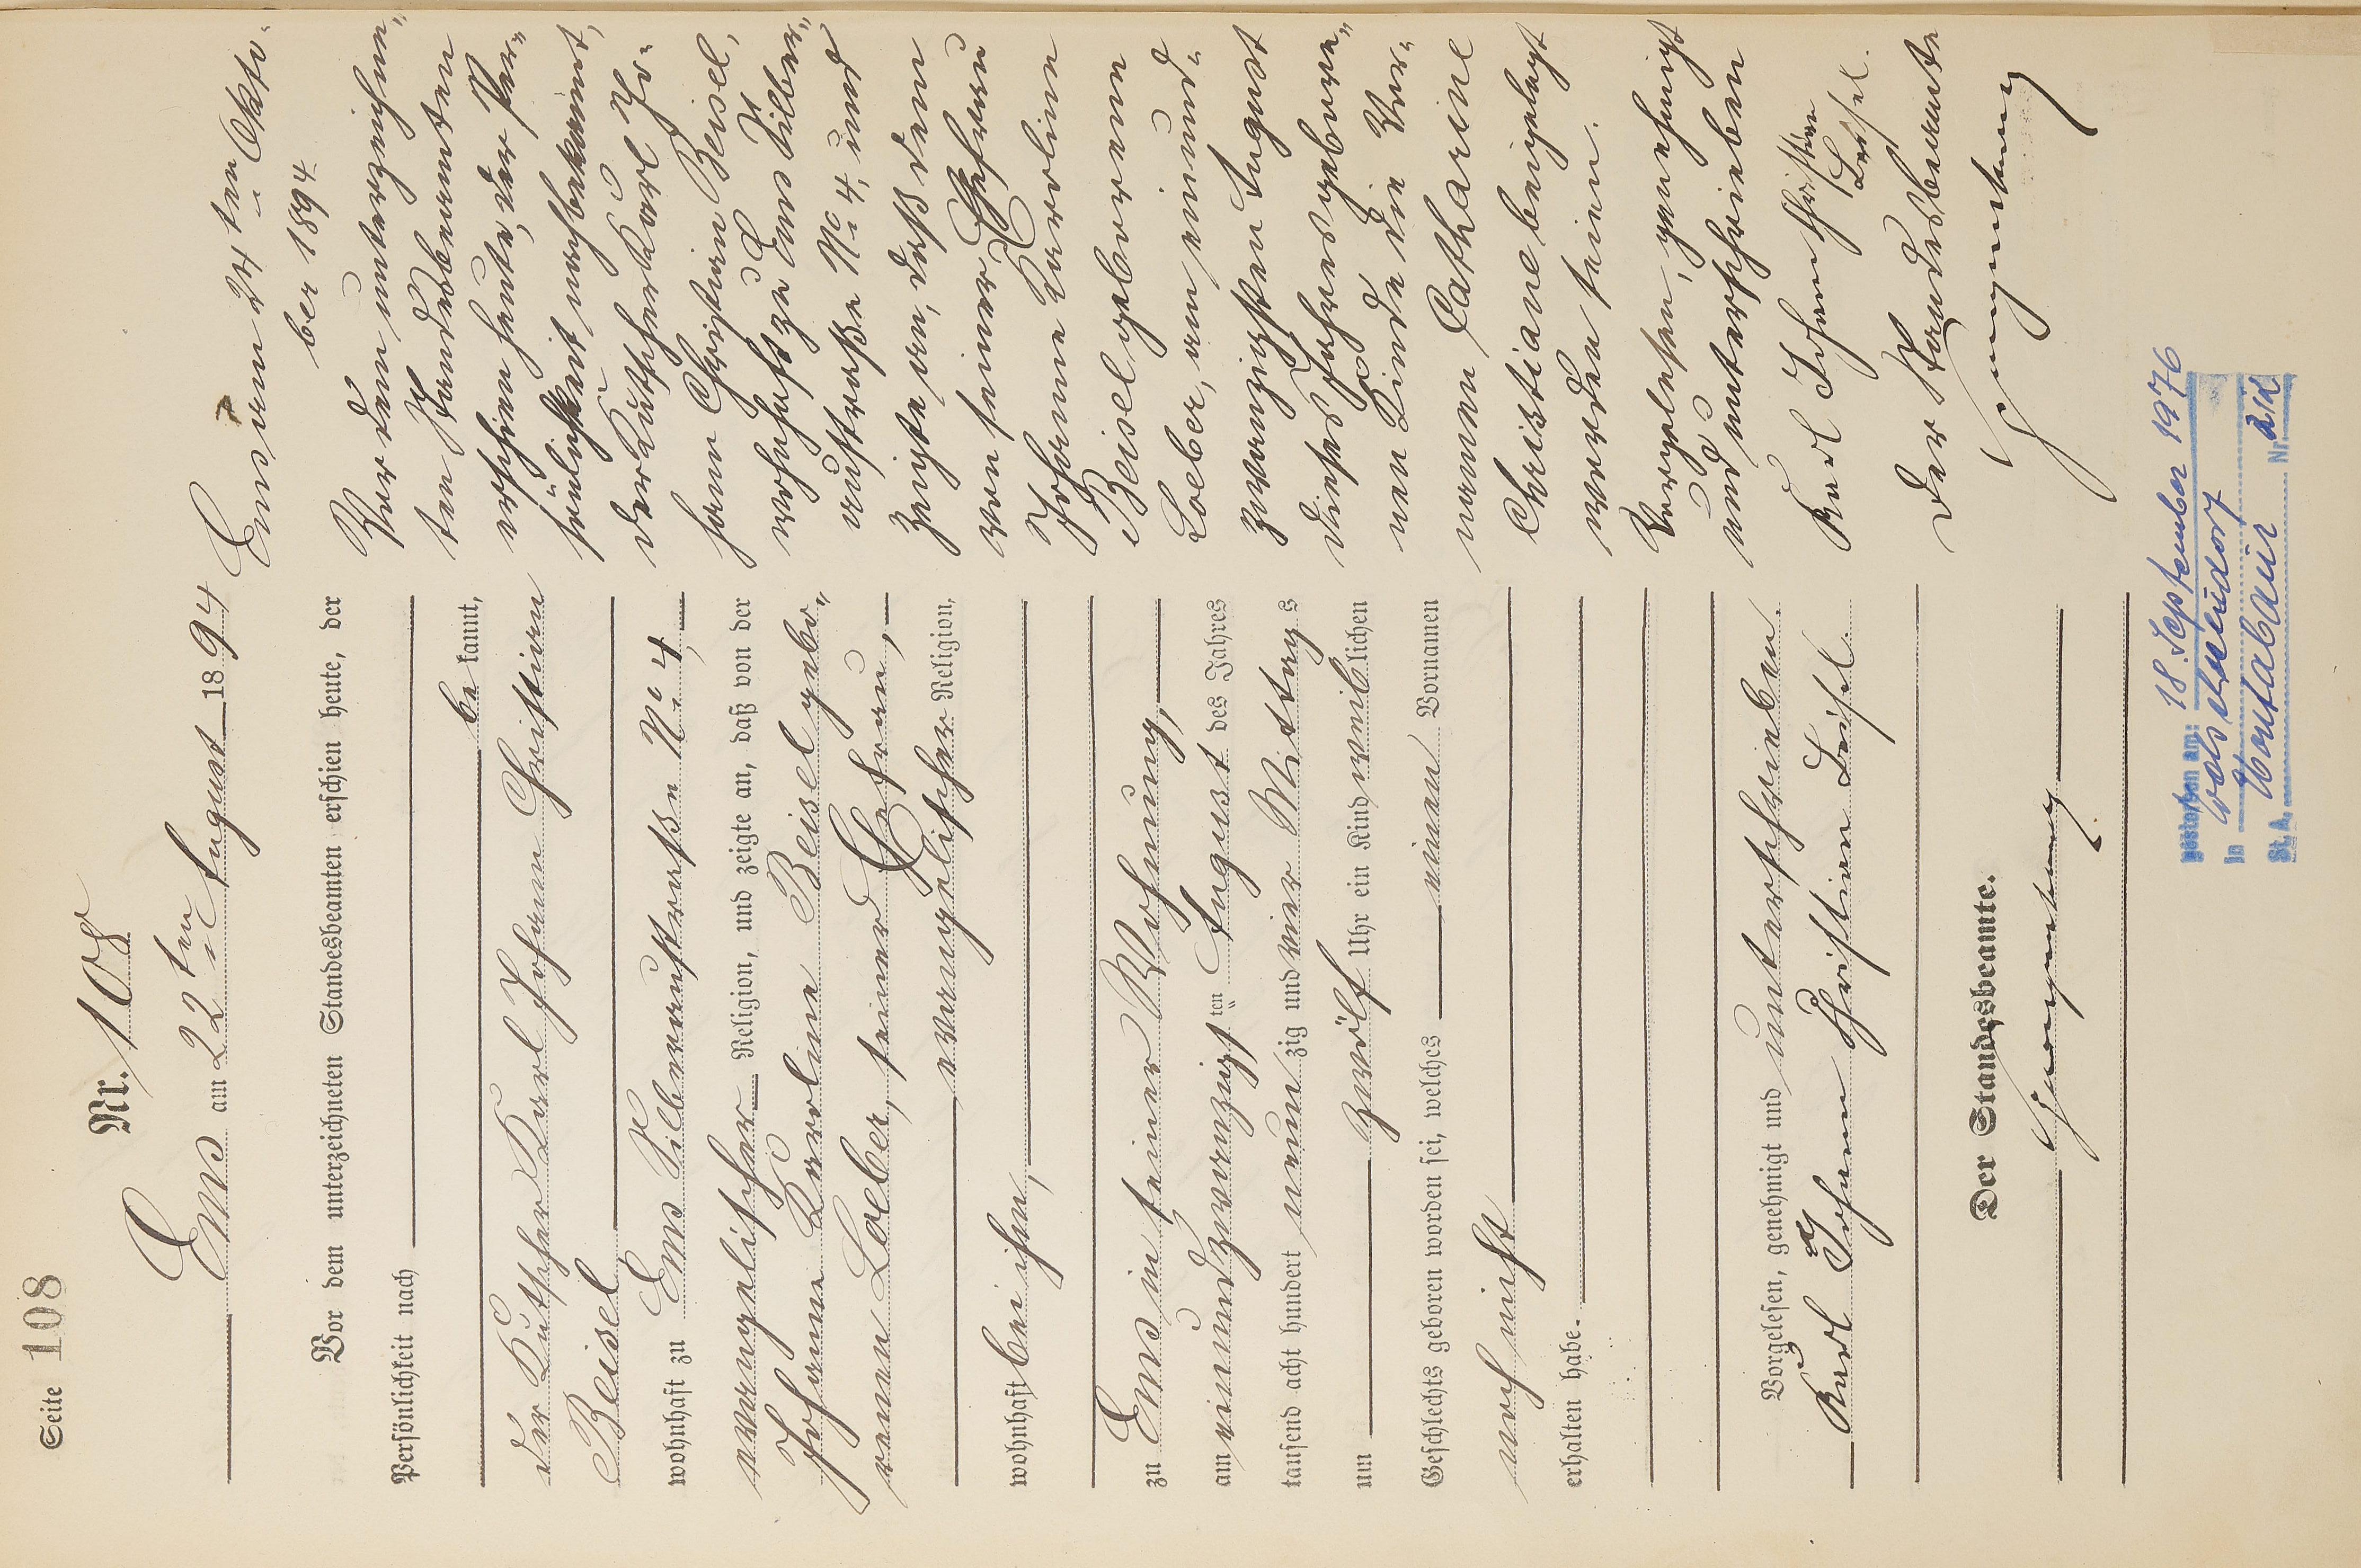 Seite 108
Nr. 108
Ems am 22ten August 1894
Vor dem unterzeichneten Standesbeamten erschien heute, der
Persönlichkeit nach
bekannt,
der Kutscher Karl Johann Christian
Beisel
wohnhaft zu Ems Silberaustraße No 4,
evangelischer Religion, und zeigte an, daß von der
Johanna Karoline Beisel gebo„
renen Loeber, seiner Ehefrau,
evangelischer Religion,
wohnhaft bei ihm,
zu Ems in seiner Wohnung,
am einundzwanzigsten August des Jahres
tausend acht hundert neunzig und vier Mittags
um zwölf Uhr ein Kind weiblichen
Geschlechts geboren worden sei, welches einen Vornamen
noch nicht
erhalten habe.
Vorgelesen, genehmigt und unterschrieben.
Karl Johann Christian Beisel.
Der Standesbeamte.
Ems am 24ten Okto-
ber 1894
Vor dem unterzeichne„
ten Standesbeamten
erschien heute, der Per„
sönlichkeit nach bekannt,
der Kutscher Karl Jo-
hann Christian Beisel,
wohnhaft zu Ems Silber„
austraße No 4, und
zeigte an, daß dem
von seiner Ehefrau
Johanna Karoline
Beisel geborenen
Loeber, am einund-
zwanzigsten August
dieses Jahres gebore„
nen Kinde die Vor-
namen Catharine
Christiane beigelegt
worden seien.
Vorgelesen, genehmigt
und unterschrieben
Karl Johann Christian
Beisel.
Der Standesbeamte
gestorben am: 18. September 1976
in
St. A. Montabaur Nr.